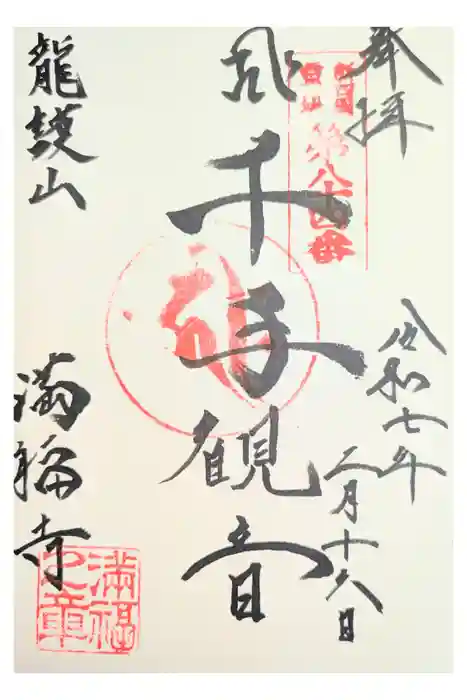 奉拝
令和七年
二月十六日
第八十四番
千手観音
龍護山
満福寺
滿福
之章